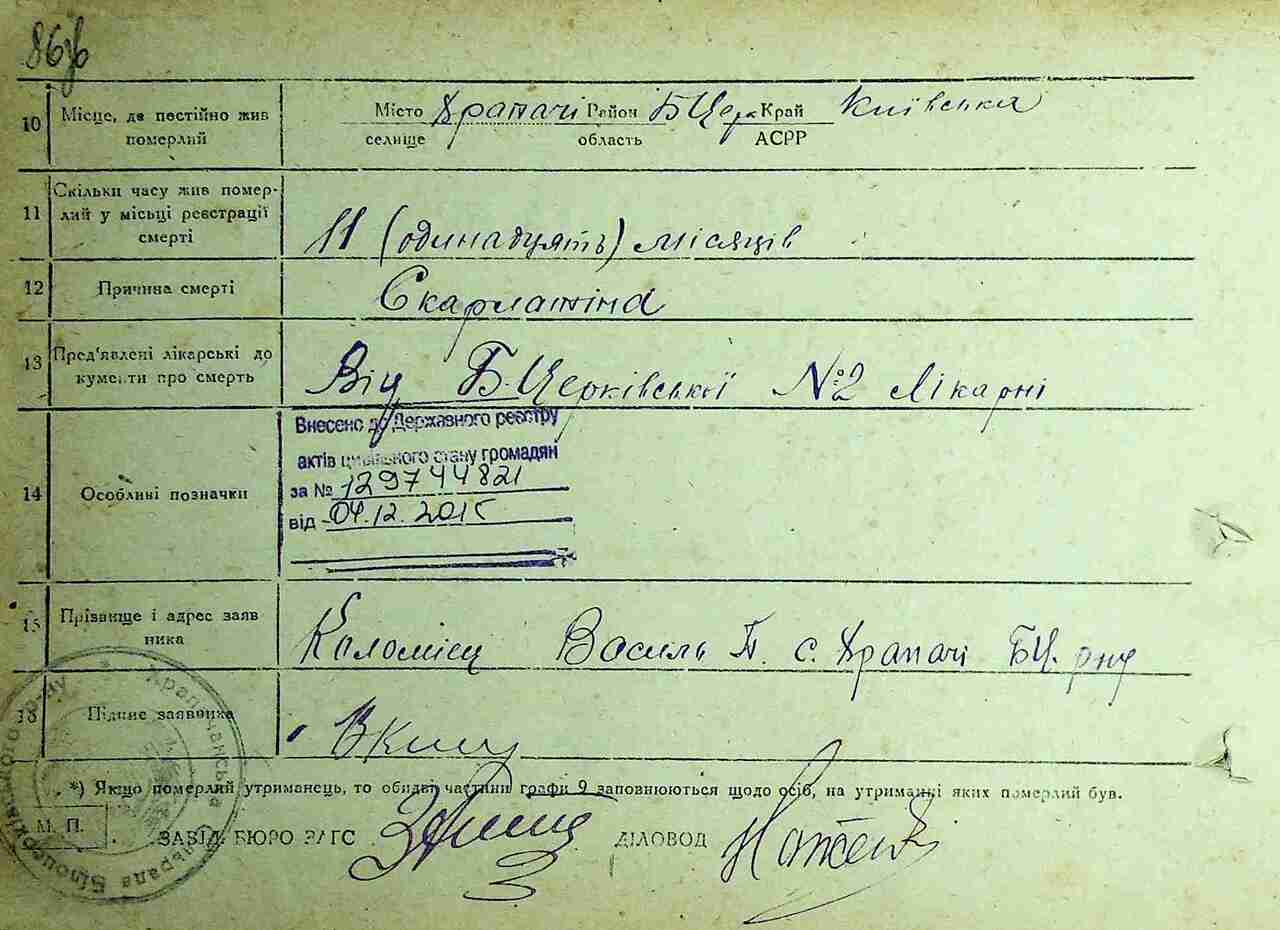 86зв
10 Місце, де постійно жив Місто Храпачі Район Б Церк Край Київська
померлий селище область АСРР
11 Скільки часу жив помер-
лий у місці реєстрації
смерті 11 (одинадцять) місяців
12 Причина смерті Скарлатіна
13 Пред'явлені лікарські до
кументи про смерть Від Б. Церківської №2 лікарні
14 Особливі позначки
Внесено до Державного реєстру
актів цивільного стану громадян
за № 129744821
від 04.12.2015
15 Прізвище і адрес заяв
ника Коломієц Василь П. с. Храпачі БЦ. рну
16 Підпис заявника
*) Якщо померлий утриманець, то обидві частини графи 9 заповнюються щодо осіб, на утриманні яких померлий був.
М. П.
ЗАВІД. БЮРО ЗАГС ДІЛОВОД